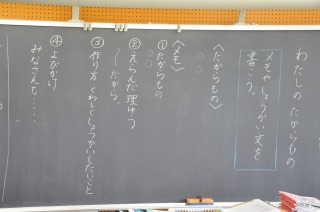 わたしのたからもの
メモやしょうかい文を
書こう。
〈たからもの〉
○○
〈メモ〉
①たからもの
○○
②えらんだ理ゆう
〜だから。
③作り方 くわしくしょうかいしたいこと
④よびかけ
みなさんも・・・・